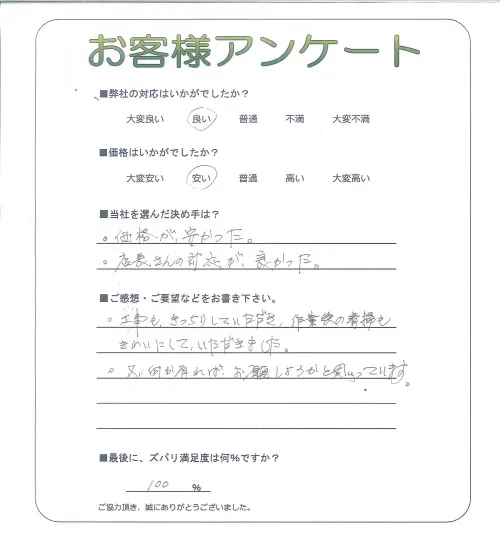 お客様アンケート
■弊社の対応はいかがでしたか？
大変良い 良い 普通 不満 大変不満
■価格はいかがでしたか？
大変安い 安い 普通 高い 大変高い
■当社を選んだ決め手は？
。価格が、安かった。
。店長さんの対応が、良かった。
■ご感想・ご要望などをお書き下さい。
。工事も、きっちりしていただき、作業後の清掃も
きれいにして、いただきました。
。又、何か有れば、お願しようかと思っています。
■最後に、ズバリ満足度は何％ですか？
100 ％
ご協力頂き、誠にありがとうございました。